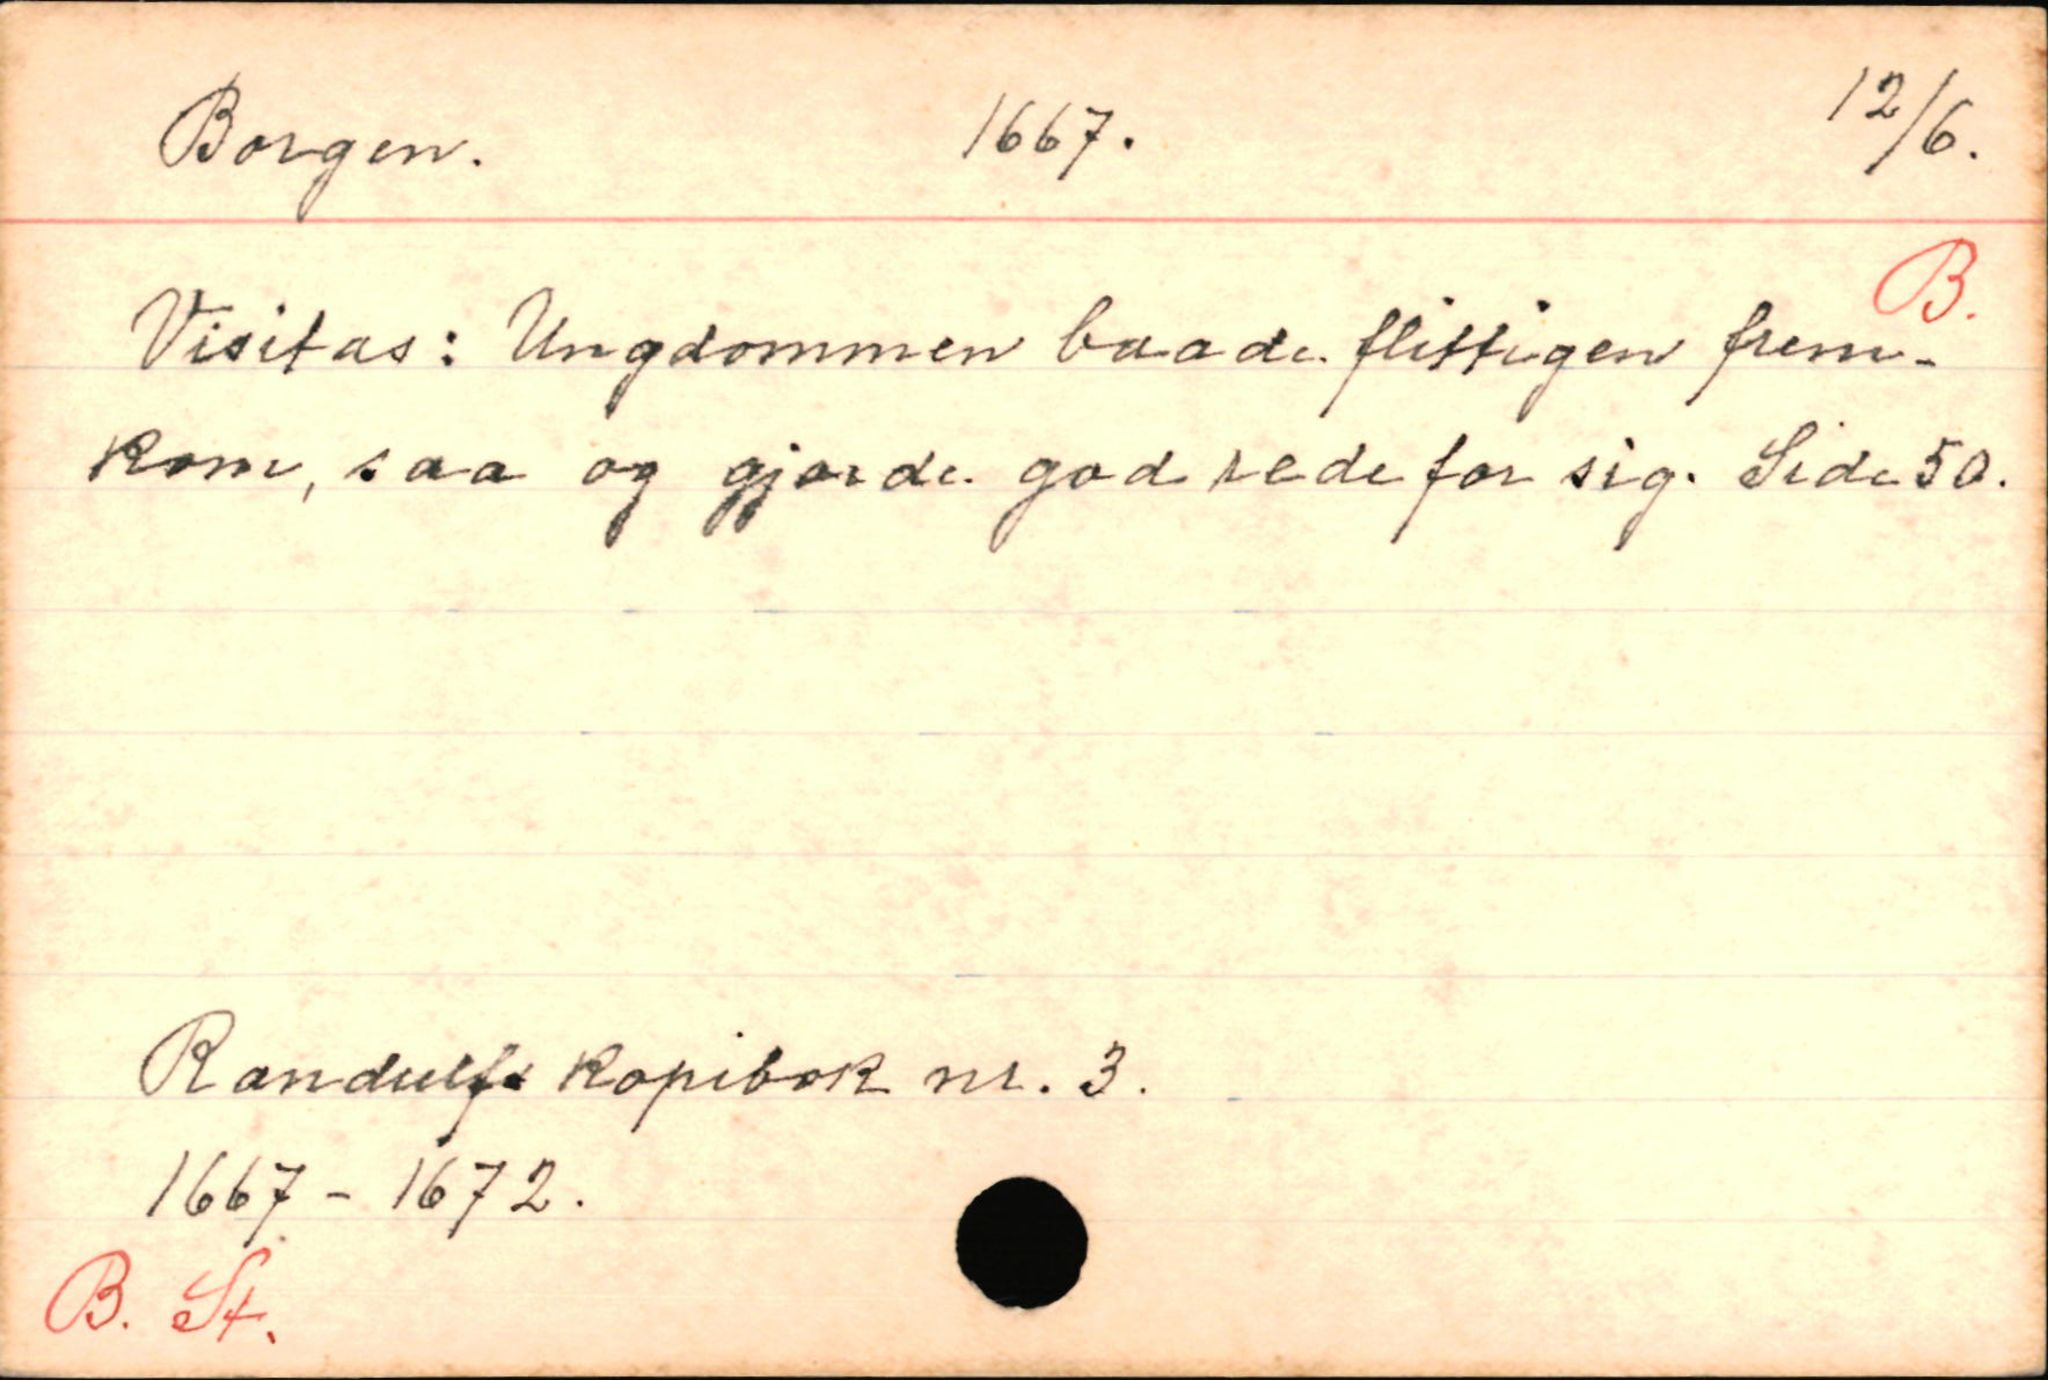 Borgen. 1667. 12/6.
B.
Visitas: Ungdommen baade flittigen frem-
kom, saa og gjorde god rede for sig. Side 50.
Randulfs kopibok nr. 3.
1667 - 1672.
B. St.